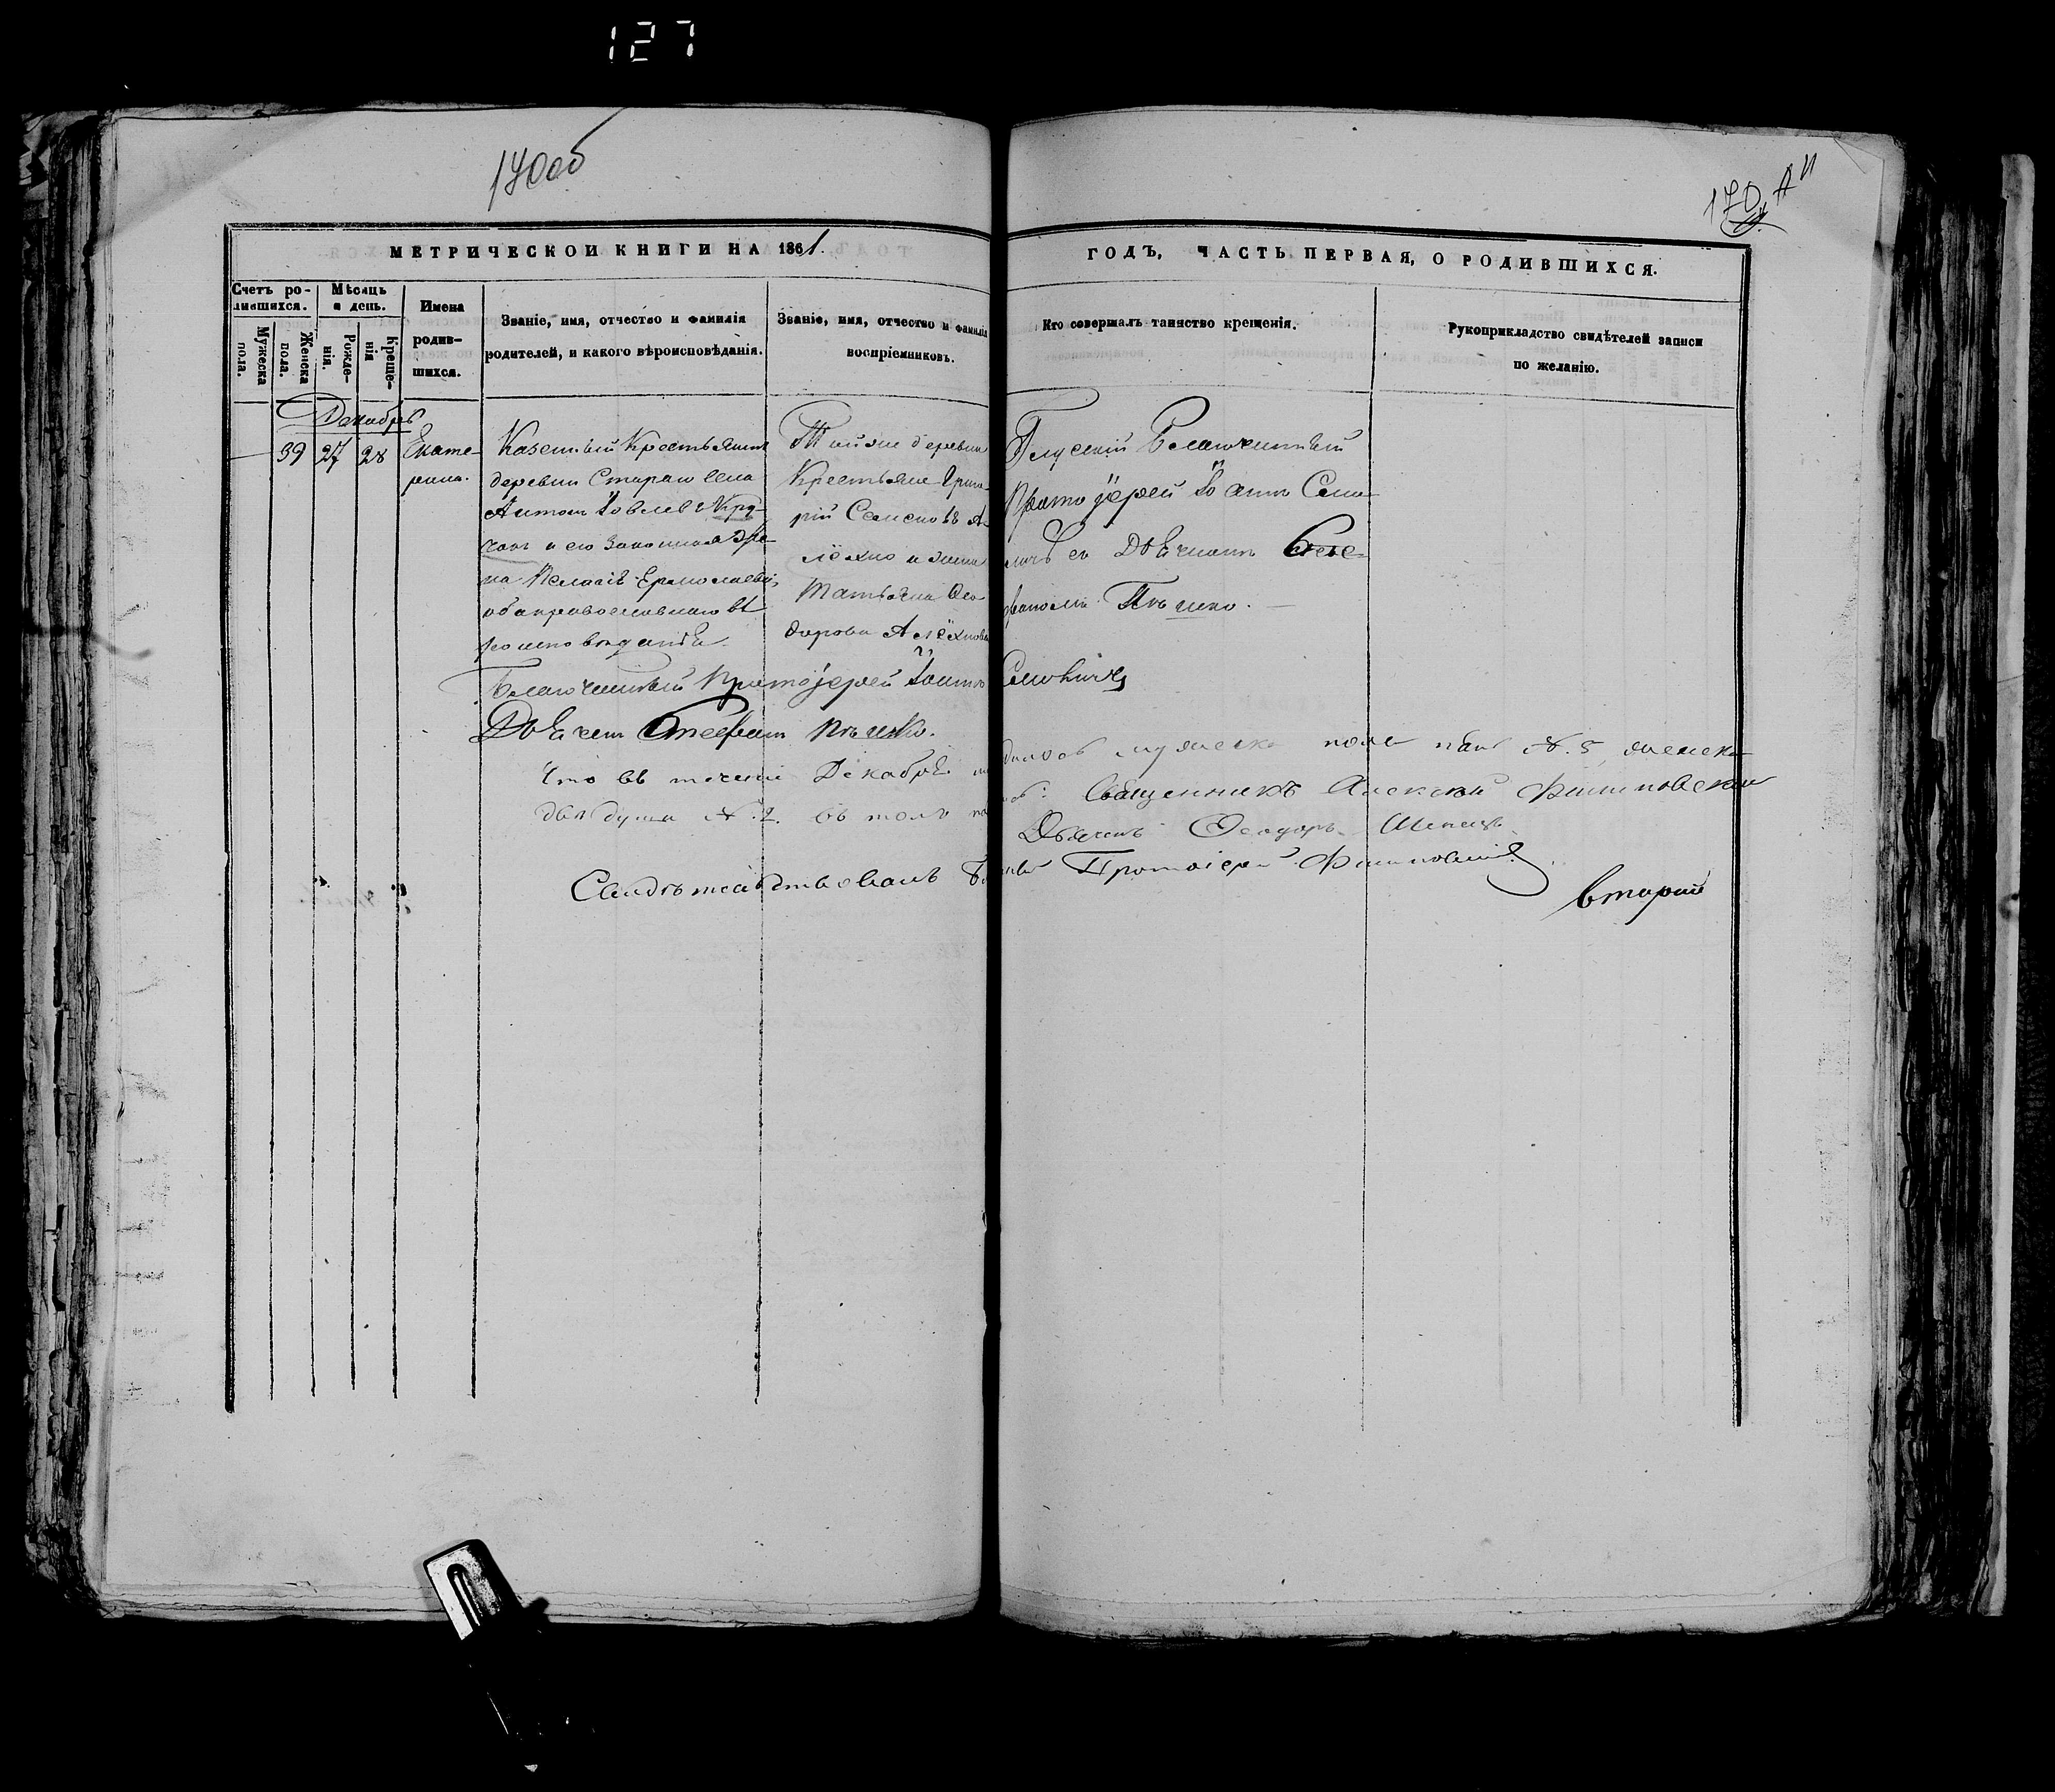 127
170об
170 "А"
МЕТРИЧЕСКОЙ КНИГИ НА 1861. ГОДЪ, ЧАСТЬ ПЕРВАЯ, О РОДИВШИХСЯ.
Счетъ родившихся.
Мужеска пола.
Женска пола.
Мѣсяцъ и день.
Рожденія.
Крещенія
Имена родившихся.
Званіе, имя, отчество и фамилія родителей, и какого вѣроисповѣданія.
Званіе, имя, отчество и фамилія воспріемниковъ.
Кто совершалъ таинство крещенія.
Рукоприкладство свидѣтелей записи по желанію.
Декабрь
39 27 28
Екате-
рина.
Казенный Крестьянинъ
деревни Стараго села
Антонъ
и его законная Же-
на Ермолаева,
оба православнаго вѣ
роисповѣданія.
Той же деревни
Крестьяне Григо-
рій Семеновъ А-
лёхно и жена
Татьяна Ѳео-
дорова Алёхнова
Глускій Благочинный
Протоіерей Іоаннъ Сему
съ Дьячкомъ Сте-
фаномъ Пѣшко.
Благочинный Протоіерей Іоаннъ
Дьячекъ Стефанъ Пѣшко.
Что въ теченіи Декабря мужеска пола пять №. 5, женска
двѣ души №. 2. въ томъ Священникъ Алексѣй
Дьячекъ Ѳеодоръ
Свидѣтельствовалъ Протоіерей
второй